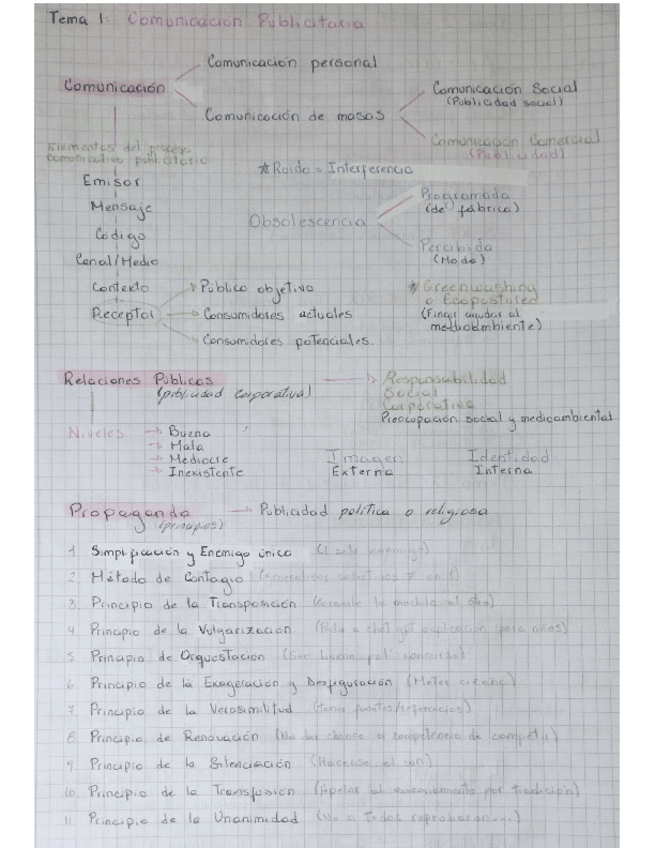 Tema 1: Comunicación Publicitaria
Comunicación personal
Comunicación
Comunicación de masas
Comunicación Social
(Publicidad social)
Comunicación Comercial
(Publicidad)
Elementos del proceso
comunicativo publicitario
Emisor
Mensaje
Código
Canal/Medio
Contexto
Receptor
Público objetivo
Consumidores actuales
Consumidores potenciales.
*Ruido = Interferencia
Obsolescencia
Programada
(de fábrica)
Percibida
(Moda)
*Greenwashing
o Ecopostureo
(Fingir ayudar al
medioambiente)
Relaciones Públicas
(publicidad corporativa)
Responsabilidad
Social
Corporativa
Preocupación social y medioambiental
Niveles
Buena
Mala
Mediocre
Inexistente
Imagen
Externa
Identidad
Interna
Propaganda
(principios)
Publicidad política o religiosa
1. Simplificación y Enemigo único (1 solo enemigo)
2. Método de Contagio
3. Principio de la Transposición
4. Principio de la Vulgarización (para niños)
5. Principio de Orquestación
6. Principio de la Exageración y Desfiguración (Meter cizaña)
7. Principio de la Verosimilitud (tener fuentes/referencias)
8. Principio de Renovación (No dar chance a competencia de competir)
9. Principio de la Silenciación
10. Principio de la Transfusión (Apelar al por tradición)
11. Principio de la Unanimidad